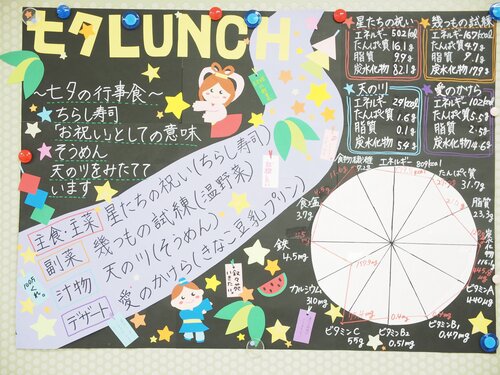 七夕LUNCH
～七夕の行事食～
ちらし寿司
「お祝い」としての意味
そうめん
天の川をみたてて
います
主食・主菜 星たちの祝い(ちらし寿司)
副菜 幾つもの試練(温野菜)
汁物 天の川(そうめん)
デザート 愛のかけら(きなこ豆乳プリン)
星たちの祝い
エネルギー 502kcal
たんぱく質 16.1g
脂質 9.9g
炭水化物 82.1g
幾つもの試練
エネルギー 167kcal
たんぱく質 4.7g
脂質 9.1g
炭水化物 17.9g
天の川
エネルギー 29kcal
たんぱく質 1.6g
脂質 0.1g
炭水化物 5.4g
愛のかけら
エネルギー 102kcal
たんぱく質 5.5g
脂質 2.5g
炭水化物
エネルギー 801kcal
たんぱく質
31.7g
脂質
23.3g
炭水化物
ビタミンA
440μg
ビタミンB1
0.47mg
ビタミンB2
0.51mg
ビタミンC
55g
カルシウム
310mg
鉄
4.5mg
食塩
3.7g
食物繊維